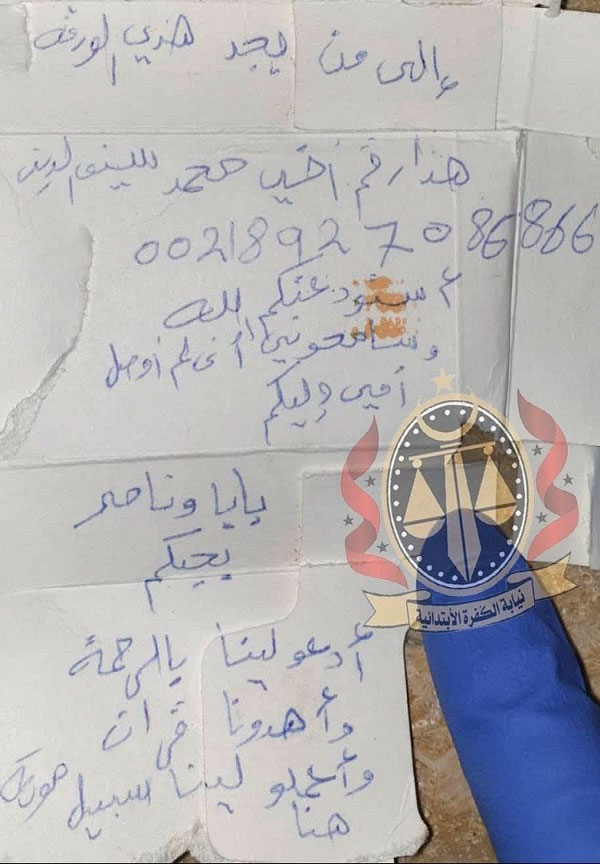 إلى من يجد هذي لورقه
هذا رقم أخي محمد سيف لدين
00218927086866
أستودعتكم الله
وسامحوني أني لم أوصل
أمي وليكم
بابا وناصر
يحبكم
أدعو لينا بالرحمة
وأهدونا قرآن
وأعملو لينا سبيل
هنا
نيابة الكفرة الأبتدائية